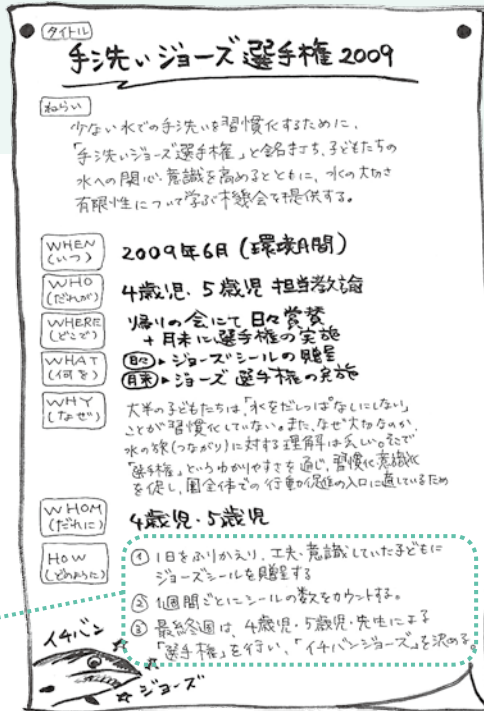 タイトル
手洗いジョーズ選手権2009
ねらい
少ない水での手洗いを習慣化するために、
「手洗いジョーズ選手権」と銘打ち、子どもたちの
水への関心・意識を高めるとともに、水の大切さ
有限性について学ぶ機会を提供する。
WHEN
(いつ)
2009年6月(環境月間)
WHO
(だれが)
4歳児・5歳児 担当教諭
WHERE
(どこで)
帰りの会にて日々賞賛
+月末に選手権の実施
WHAT
(何を)
日々▶ジョーズシールの贈呈
月末▶ジョーズ選手権の実施
WHY
(なぜ)
大半の子どもたちは、「水をだしっぱなしにしない」
ことが習慣化していない。また、なぜ大切なのか、
水の旅(つながり)に対する理解は乏しい。そこで
「選手権」というわかりやすさを通じ、習慣化・意識化
を促し、園全体での行動促進の入口に適しているため
WHOM
(だれに)
4歳児・5歳児
HOW
(どのように)
① 1日をふりかえり、工夫・意識していた子どもに
ジョーズシールを贈呈する
② 1週間ごとにシールの数をカウントする。
③ 最終週は、4歳児・5歳児・先生による
「選手権」を行い、「イチバンジョーズ」を決める。
イチバン
ジョーズ